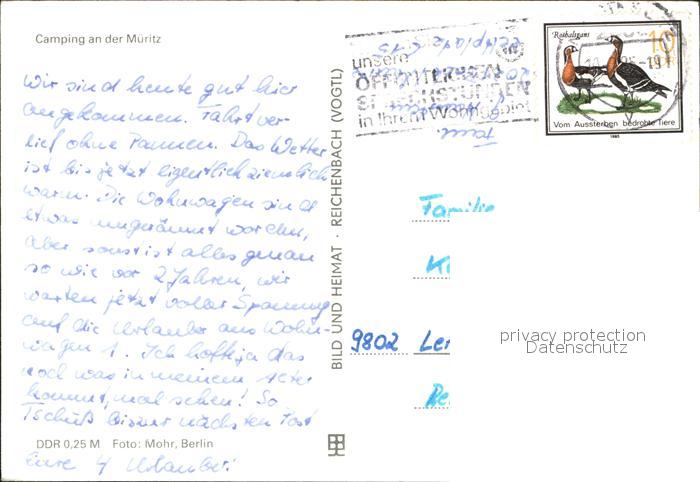 Camping an der Müritz
Wir sind heute gut hier
angekommen. Fahrt ver-
lief ohne Pannen. Das Wetter
ist bis jetzt eigentlich ziemlich
warm. Die Wohnwagen sind
etwas umgeräumt worden,
aber sonst ist alles genau
so wie vor 2 Jahren, wir
warten jetzt voller Spannung
auf die Urlauber aus Wohn-
wagen 1. Ich hoffe ja das
noch was in meinem Alter
kommt, mal sehen! So
Tschüß bis zur nächsten Post
DDR 0,25 M Foto: Mohr, Berlin
Eure 4 Urlauber!
BILD UND HEIMAT · REICHENBACH (VOGTL)
unsere
ÖFFENTLICHEN
SPRECHSTUNDEN
in Ihrem Wohngebiet
Rothalsgans
10
DDR
Vom Aussterben bedrohte Tiere
1985
Familie
9802
privacy protection
Datenschutz